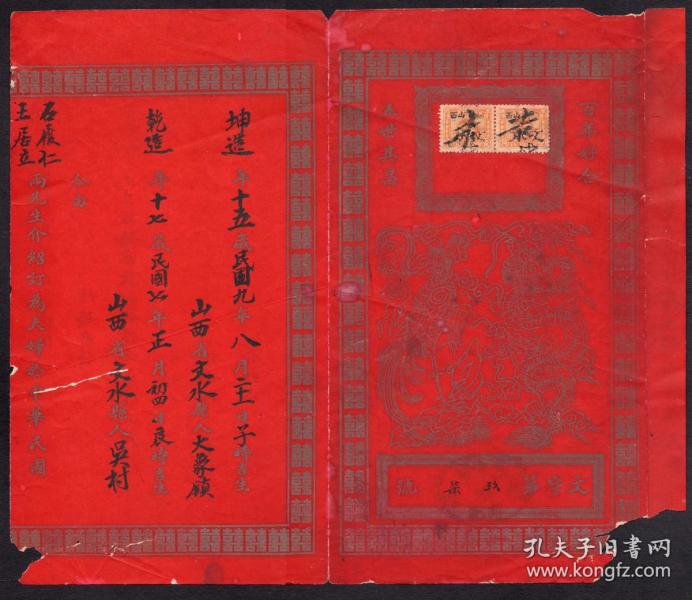 百年好合
五世其昌
山西
山西
文字第 玖柒 號
坤造 年十五歲民國九年八月二十一日子時吉生
山西省文水縣人大象鎮
乾造 年十七歲民國七年正月初四日辰時吉生
山西省文水縣人吳村
今由
石履仁
王居立
兩先生介紹訂為夫婦於中華民國
孔夫子旧书网
www.kongfz.com